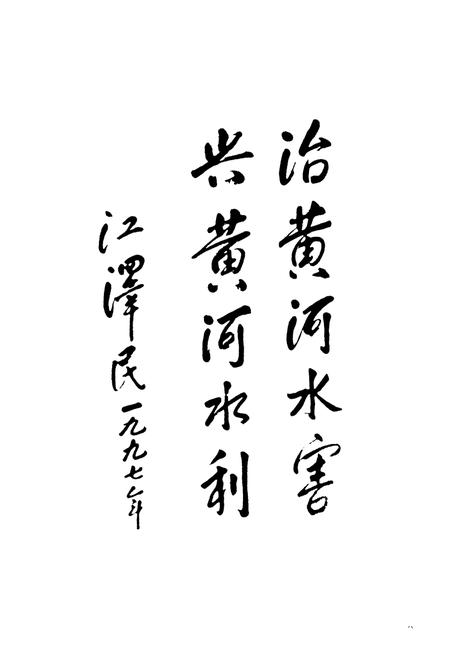 治黄河水害
兴黄河水利
江澤民一九九七年